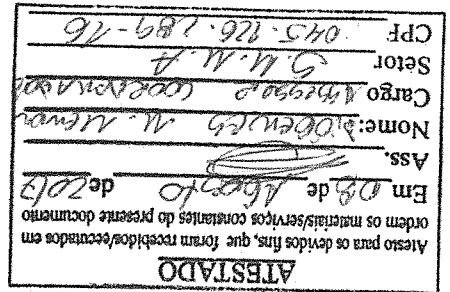 ATESTADO
Atesto para os devidos fins, que foram recebidos/executados em
ordem os materiais/serviços constantes do presente documento
Em 08 de Agosto de 2017
Ass.
Nome: Diógenes M. Menor
Cargo Assessor Coordenador
Setor S.M.M.A
CPF 045.126.789-16